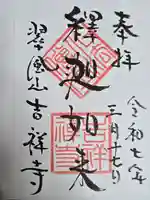 奉拝
令和七年
三月十七日
釋迦如来
翠風山吉祥寺
吉祥寺